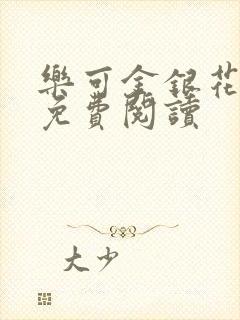 樂可金銀花
免費閱讀
大少